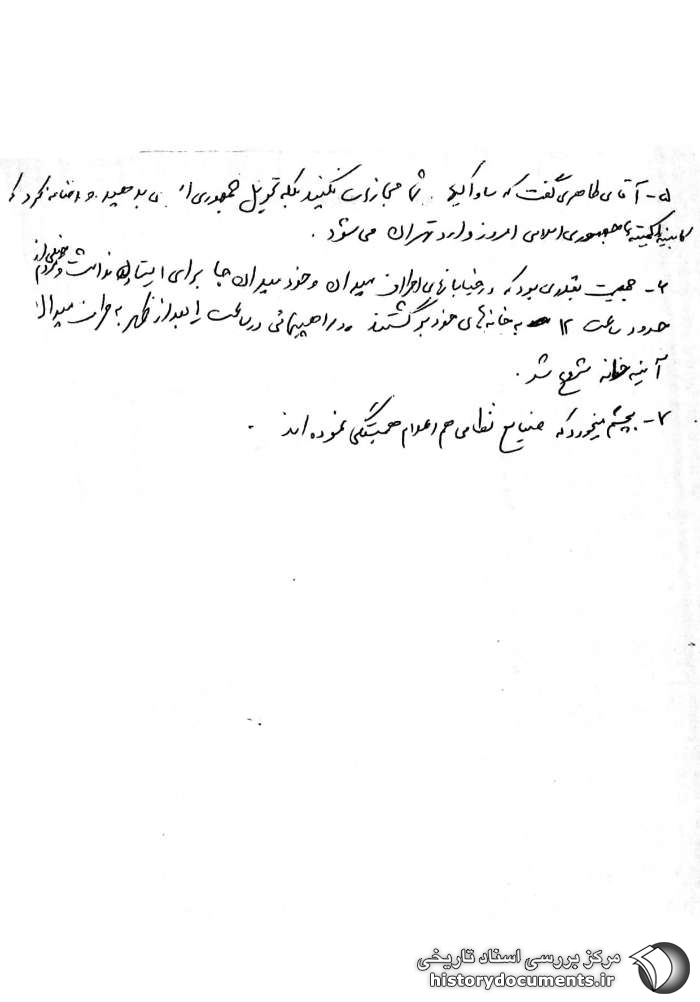 ۵- آقای طاهری گفت که ساواکیها را شما مجازات نکنید بلکه تحویل جمهوری ا ی بدهید و اضافه کرد که
کابینه کمیته یا جمهوری اسلامی امروز وارد تهران می‌شود .
۶- جمعیت بقدری بود که در خیابانهای اطراف میدان و خود میدان جا برای ایستادن نداشت و مردم
حدود ساعت ۱۲ به خانه‌های خود برگشتند و راهپیمائی در ساعت بعد از ظهر به طرف میدان
آئینه خانه شروع شد .
۷- بچشم میخورد که صنایع نظامی هم اعلام همبستگی نموده اند .
مرکز بررسی اسناد تاریخی
historydocuments.ir